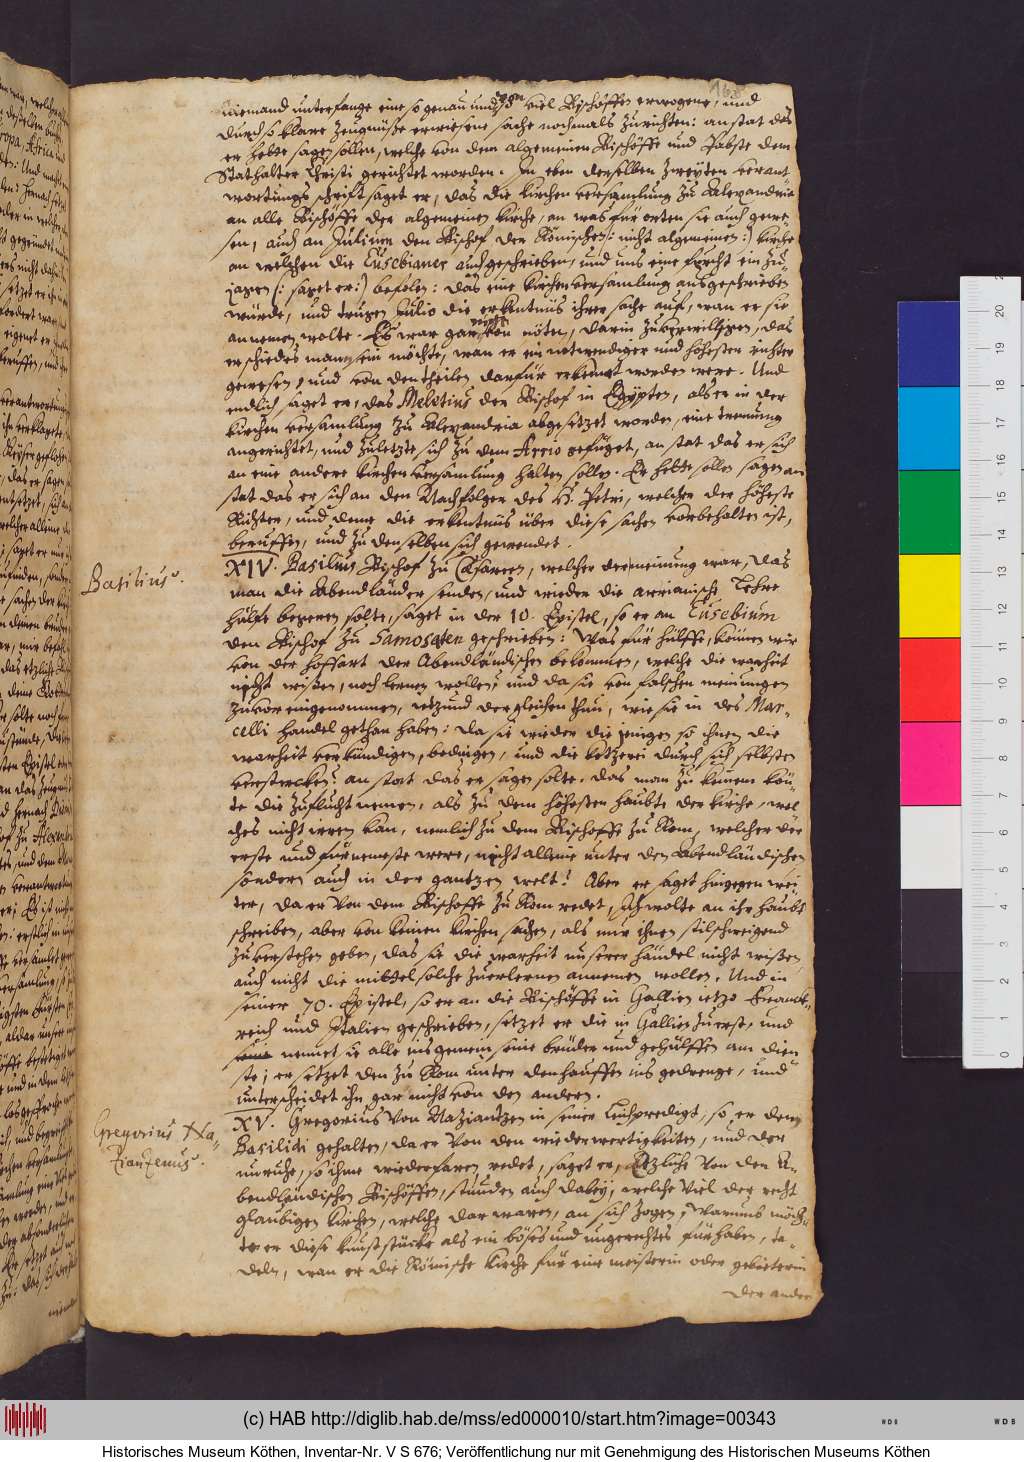 163
niemand unterfange eine so genau und von so viel Bischöffen erwogene, und
durch so klare zeugnüße erwiesene sache nochmals zurichten: an stat das
er hette sagen sollen, welche von dem algemeinen Bischöffe und Pabste dem
Stathalter Christi gerichtet worden. In eben derselben zweyten verant-
wortungs schrift saget er, das die Kirchen versamlung zu Alexandria
an alle Bischöffe der algemeinen Kirche, an was für orten sie auch gewe-
sen, auch an Julium den Bischof der Römischen (: nicht algemeinen :) Kirche
an welchen die Eusebianer auch geschrieben, und uns eine furcht ein zu
jagen (: saget er :) befolen: das eine Kirchen versamlung ausgeschrieben
würde, und trugen Julio die erkentnüs ihrer sache auf, wan er sie
annemen wolte. Es war gar nicht von nöten, darin zu verwilligen, das
er schiedes man sein möchte, wan er ein notwendiger und höhester richter
gewesen, und von den theilen darfür erkennet worden were. Und
endlich saget er, das Meletius der Bischof in Egypten, als er in der
Kirchen versamlung zu Alexandria abgesetzet worden, eine trennung
angerichtet, und zuletzte sich zu dem Arrio gefüget, an stat das er sich
an eine andere Kirchen versamlung halten sollen. Er hette sollen sagen an
stat das er sich an den Nachfolger des H. Petri, welcher der höheste
Richter, und deme die erkentnüs über diese sachen vorbehalten ist,
beruffen, und zu denselben sich gewendet.
Basilius.
XIV. Basilius Bischof zu Cæsareen, welcher der meinung war, das
man die Abendländer senden, und wieder die arrianische Lehre
hülfe begeren solte, saget in der 10. Epistel, so er an Eusebium
den Bischof zu Samosaten geschrieben: Was für hülffe, können wir
von der hoffart der Abendländischen bekommen, welche die warheit
nicht wißen, noch lernen wollen, und da sie von falschen meinungen
zuvor eingenommen, itzund dergleichen thun, wie sie in des Mar-
celli handel gethan haben: da sie wieder die jenigen so ihnen die
warheit verkündigen, bedingen, und die ketzerei durch sich selbsten
verstercken? an stat das er sagen solte. das man zu keinem kön-
te die zuflucht nemen, als zu dem höhesten haubte der Kirche, wel
ches nicht irren kan, nemlich zu dem Bischoffe zu Rom, welcher der
erste und fürnemste were, nicht alleine unter den Abendländischen
sondern auch in der gantzen welt! Aber er saget hingegen wei-
ter, da er von dem Bischoffe zu Rom redet, Ich wolte an ihr haubt
schreiben, aber von keinen Kirchen sachen, als nur ihnen stilschweigend
zuverstehen geben, das sie die warheit unserer händel nicht wißen,
auch nicht die mittel solche zuerlernen annemen wollen. Und in
seiner 70. Epistel, so er an die Bischöffe in Gallien itzo Franck-
reich und Italien geschrieben, setzet er die in Gallien zuerst, und
nennet sie alle ins gemein seine brüder und gehülffen am dien
ste; er setzet den zu Rom unter den hauffen ins gedrenge, und
unterscheidet ihn gar nicht von den andern.
Gregorius Na-
zianzenus.
XV. Gregorius von Nazianzen in seiner Leichpredigt, so er dem
Basilidi gehalten, da er von den wiederwertigkeiten, und der
unruhe, so ihme wiederfaren, redet, saget er, Etzliche von den A-
bendländischen Bischöffen, stunden auch dabey, welche viel der recht
glaubigen Kirchen, welche dar waren, an sich zogen; Warumb möch-
te er diese kunststücke als ein böses und ungerechtes fürhaben, ta-
deln, wan er die Römische Kirche für eine meisterin oder gebieterin
der ander
(c) HAB http://diglib.hab.de/mss/ed000010/start.htm?image=00343
Historisches Museum Köthen, Inventar-Nr. V S 676; Veröffentlichung nur mit Genehmigung des Historischen Museums Köthen